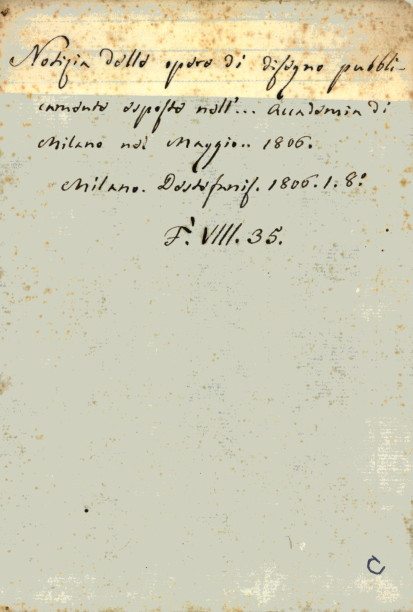 Notizia delle opere di disegno pubbli-
camente esposte nell'... Accademia di
Milano nel Maggio.. 1806.
Milano. Destefanis. 1806. 1. 8.°
F. VIII. 35.
C